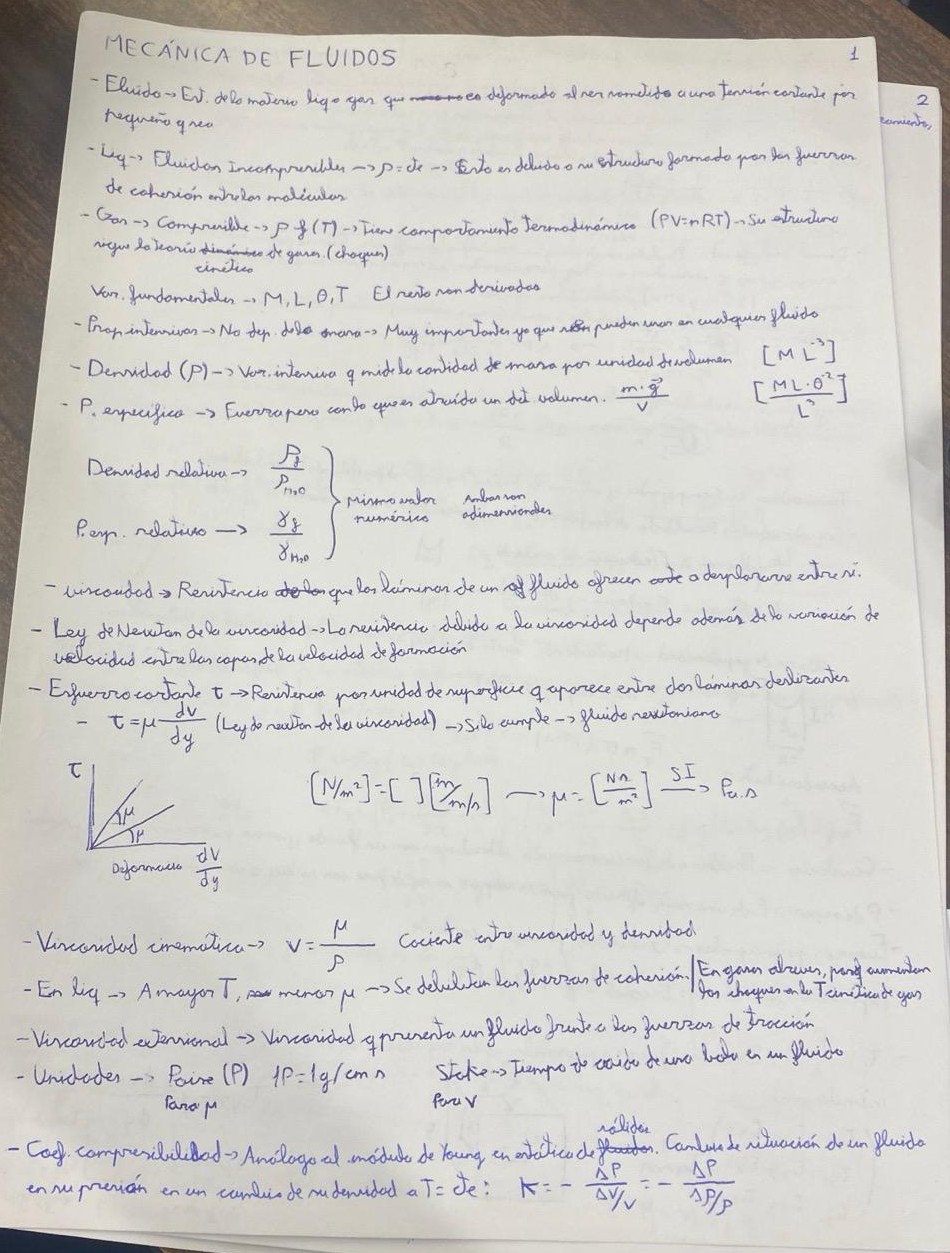 MECÁNICA DE FLUIDOS 1
- Fluido → Est. de la materia liq o gas que es deformado al ser sometido a una tensión cortante por
pequeña q sea
- Liq → Fluidos Incompresibles → ρ = cte → Esto es debido a su estructura formada por las fuerzas
de cohesión entre las moléculas
- Gas → Compresible → ρ f(T) → Tiene comportamiento termodinámico (PV=nRT) → Su estructura
sigue la teoría cinética de gases. (choques)
Var. fundamentales → M, L, θ, T El resto son derivadas
- Prop intensivas → No dep. de la masa → Muy importantes ya que pueden usar en cualquier fluido
- Densidad (ρ) → Var. intensiva q mide la cantidad de masa por unidad de volumen [M L⁻³]
- P. específico → Fuerza peso con la que es atraído un det. volumen. m·g⃗/V [ML·θ⁻²/L³]
Densidad relativa → ρf/ρH₂O
Mismo valor numérico
Ambas son adimensionales
P. esp. relativo → γf/γH₂O
- viscosidad → Resistencia que las láminas de un fluido ofrecen a desplazarse entre sí.
- Ley de Newton de la viscosidad → La resistencia debida a la viscosidad depende además de la variación de
velocidad entre las capas de la velocidad deformación
- Esfuerzo cortante τ → Resistencia por unidad de superficie q aparece entre dos láminas deslizantes
- τ = μ dv/dy (Ley de newton de la viscosidad) → Si lo cumple → fluido newtoniano
τ
μ
μ
Deformación dV/dy
[N/m²] = [ ] [m/m/s] → μ = [Ns/m²] SI → Pa.s
- Viscosidad cinemática → ν = μ/ρ Cociente entre viscosidad y densidad
- En liq → A mayor T, menor μ → Se debilitan las fuerzas de cohesión. / En gases al reves, porq aumentan
los choques en la T cinética de gas
- Viscosidad extensional → Viscosidad q presenta un fluido frente a las fuerzas de tracción
- Unidades → Poise (P) 1P = 1g/cm s Stoke → Tiempo de caída de una bola en un fluido
Para μ Para ν
- Coef. compresibilidad → Análogo al módulo de Young en estática de sólidos. Cambio de situación de un fluido
en su presión en un cambio de su densidad a T = cte: K = - ΔP/ΔV/V = - ΔP/Δρ/ρ
2